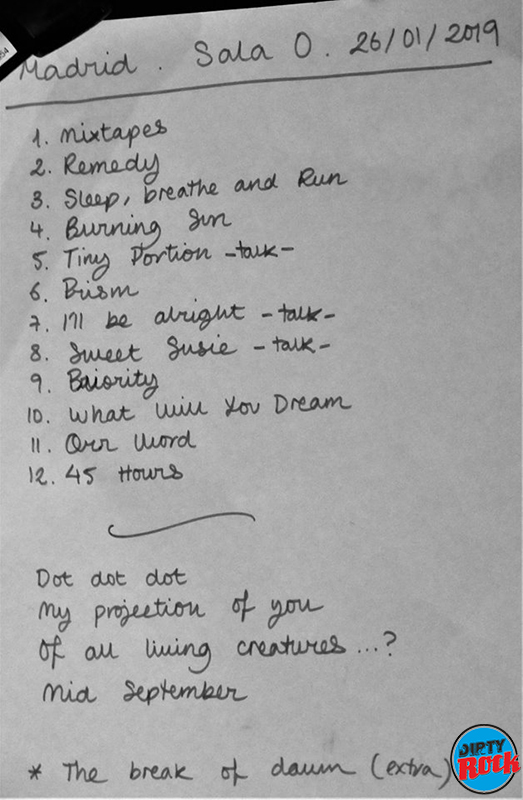 Madrid. Sala O. 26/01/2019
1. Mixtapes
2. Remedy
3. Sleep, breathe and Run
4. Burning Sun
5. Tiny Portion -talk-
6. Prism
7. I'll be alright -talk-
8. Sweet Susie -talk-
9. Priority
10. What Will You Dream
11. Our Word
12. 45 Hours
Dot dot dot
My projection of you
Of all living creatures...?
Mid September
* The break of dawn (extra)
DIRTY
Rock